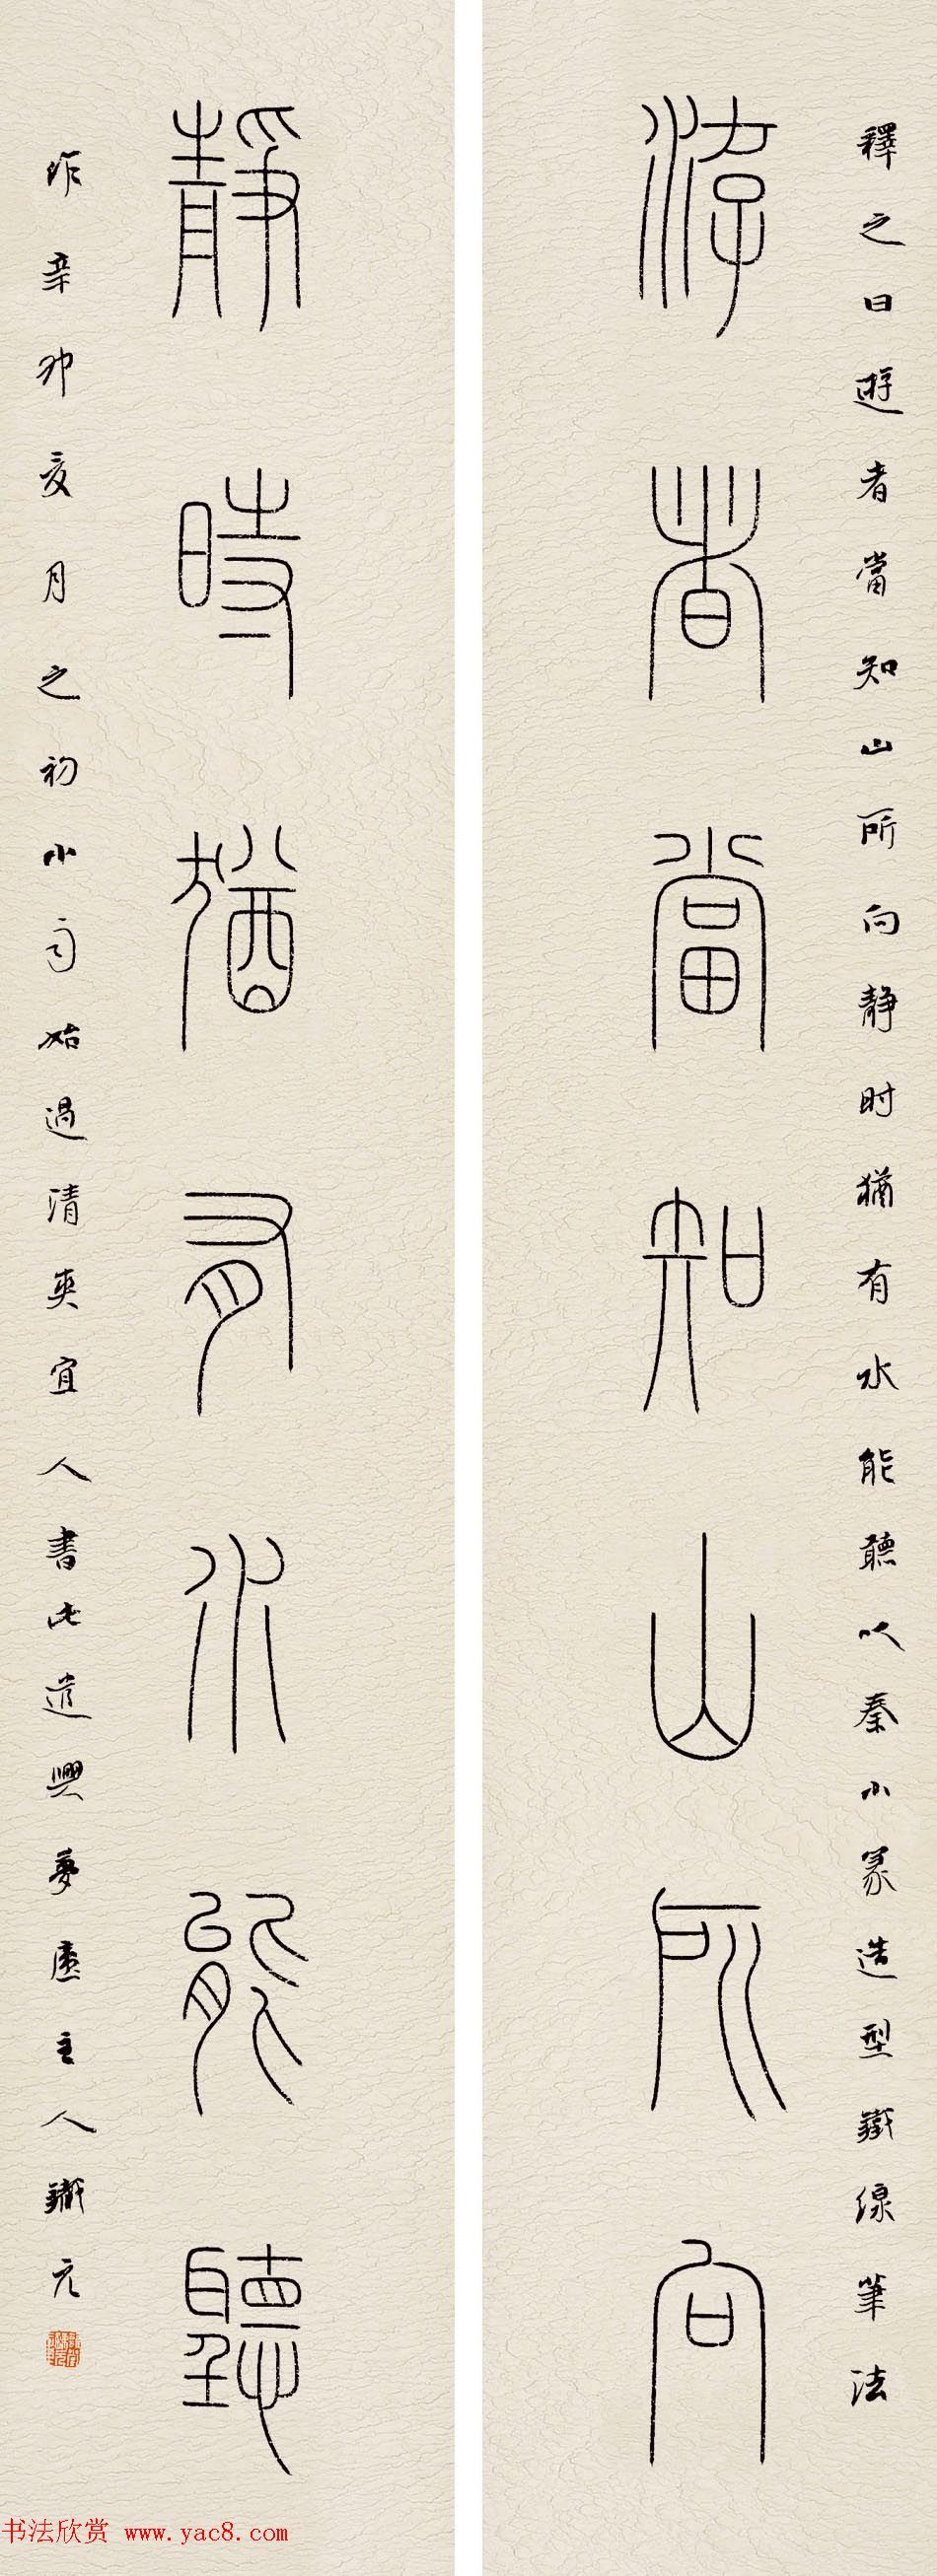 釋之曰遊者當知山所向靜时猶有水能聽以秦小篆造型鐵線筆法
游者當知山所向
靜時猶有水能聽
辛卯亥月之初小雨始過清爽宜人書此遣興夢廬主人鐵元
书法欣赏 www.yac8.com